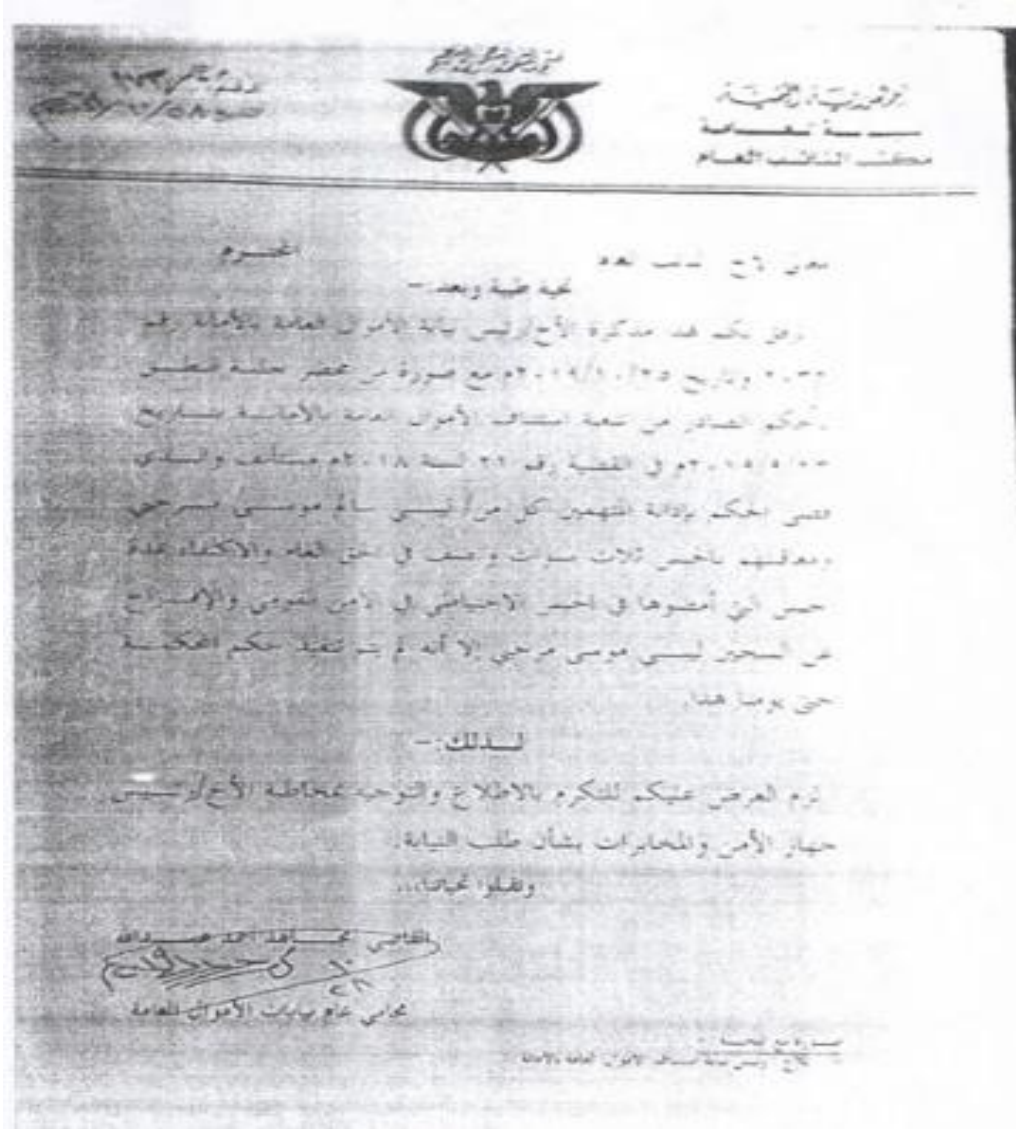 الجمهورية اليمنية
مكتب النائب العام
المحترم
تحية طيبة وبعد:-
نرفق بكم هذا مذكرة الأخ/رئيس نيابة الأموال العامة بالأمانة رقم
وتاريخ ٢٠١٩/١٠/٢٥م مع صورة من محضر جلسة النطق
بالحكم الصادر من شعبة استئناف الأموال العامة بالأمانة بتاريخ
في القضية رقم ٢٢ لسنة ٢٠١٨م مستأنف والذي
قضى الحكم بإدانة المتهمين كل من/ ليبي سالم موسى مرحبي
ومعاقبتهم بالحبس ثلاث سنوات ونصف في الحق العام والاكتفاء بمدة
الحبس التي أمضوها في الحبس الاحتياطي في الأمن القومي والإفراج
عن السجين ليبي موسى مرحبي إلا أنه لم يتم تنفيذ حكم المحكمة
حتى يومنا هذا.
لذلك:-
لزم العرض عليكم للتكرم بالاطلاع والتوجيه بمخاطبة الأخ/رئيس
جهاز الأمن والمخابرات بشأن طلب النيابة.
وتقبلوا تحياتنا،،،
القاضي مجاهد أحمد عبدالله
محامي عام نيابات الأموال العامة
صورة مع التحية
للأخ رئيس نيابة استئناف الأموال العامة بالأمانة